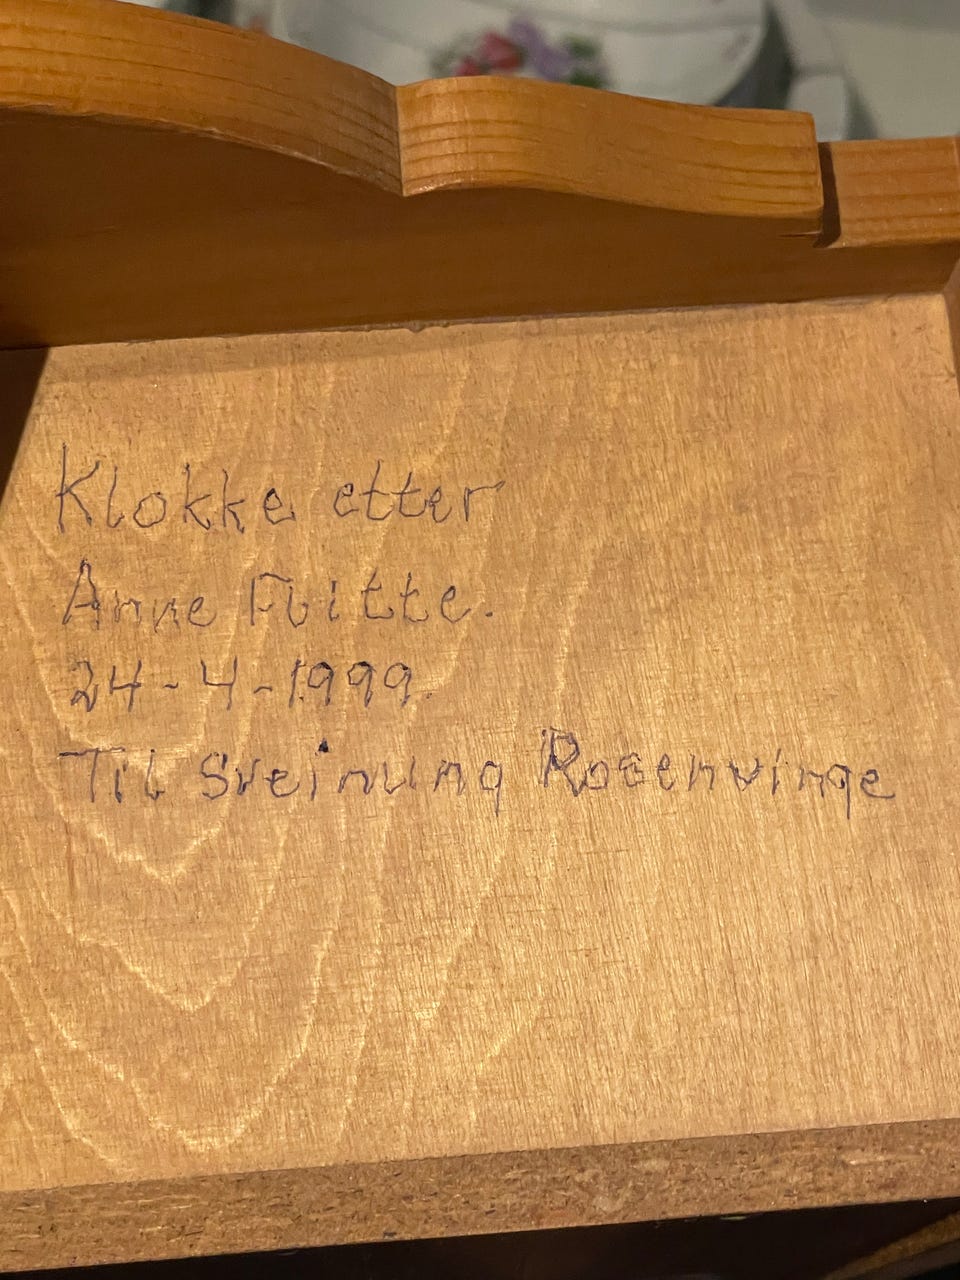 Klokke etter
Anne Flitte.
24-4-1999.
Til Sveinung Rosenvinge